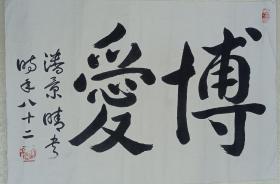 博愛
潘景晴書
時年八十二